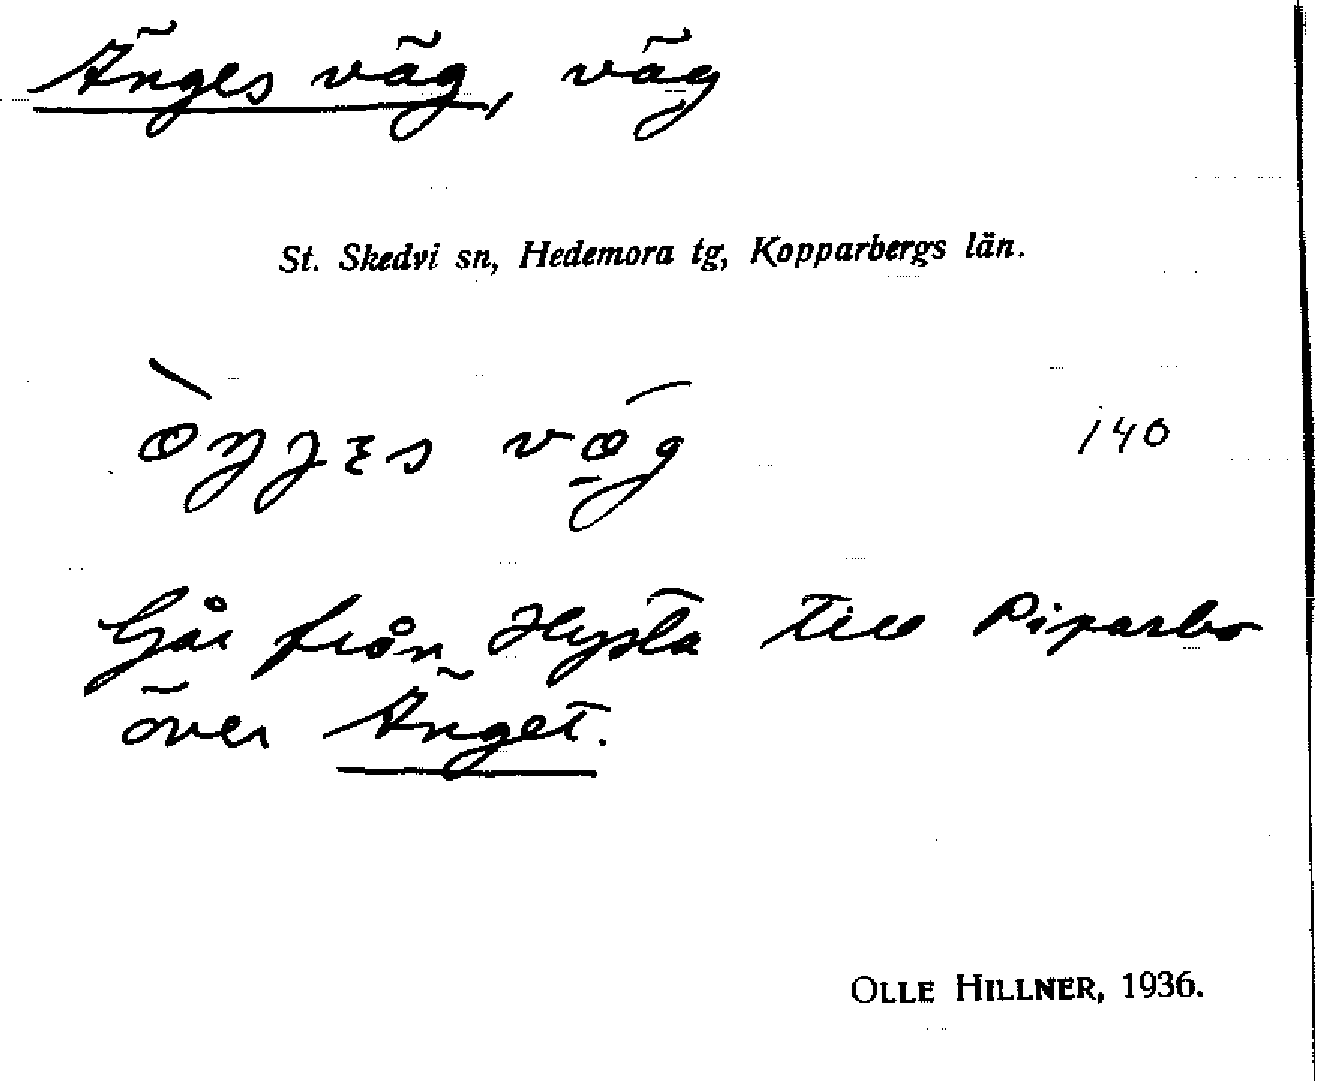 Änges väg, väg
St. Skedvi sn, Hedemora tg, Kopparbergs län.
140
Går från Hysta till Piparbo
över Änget.
OLLE HILLNER, 1936.